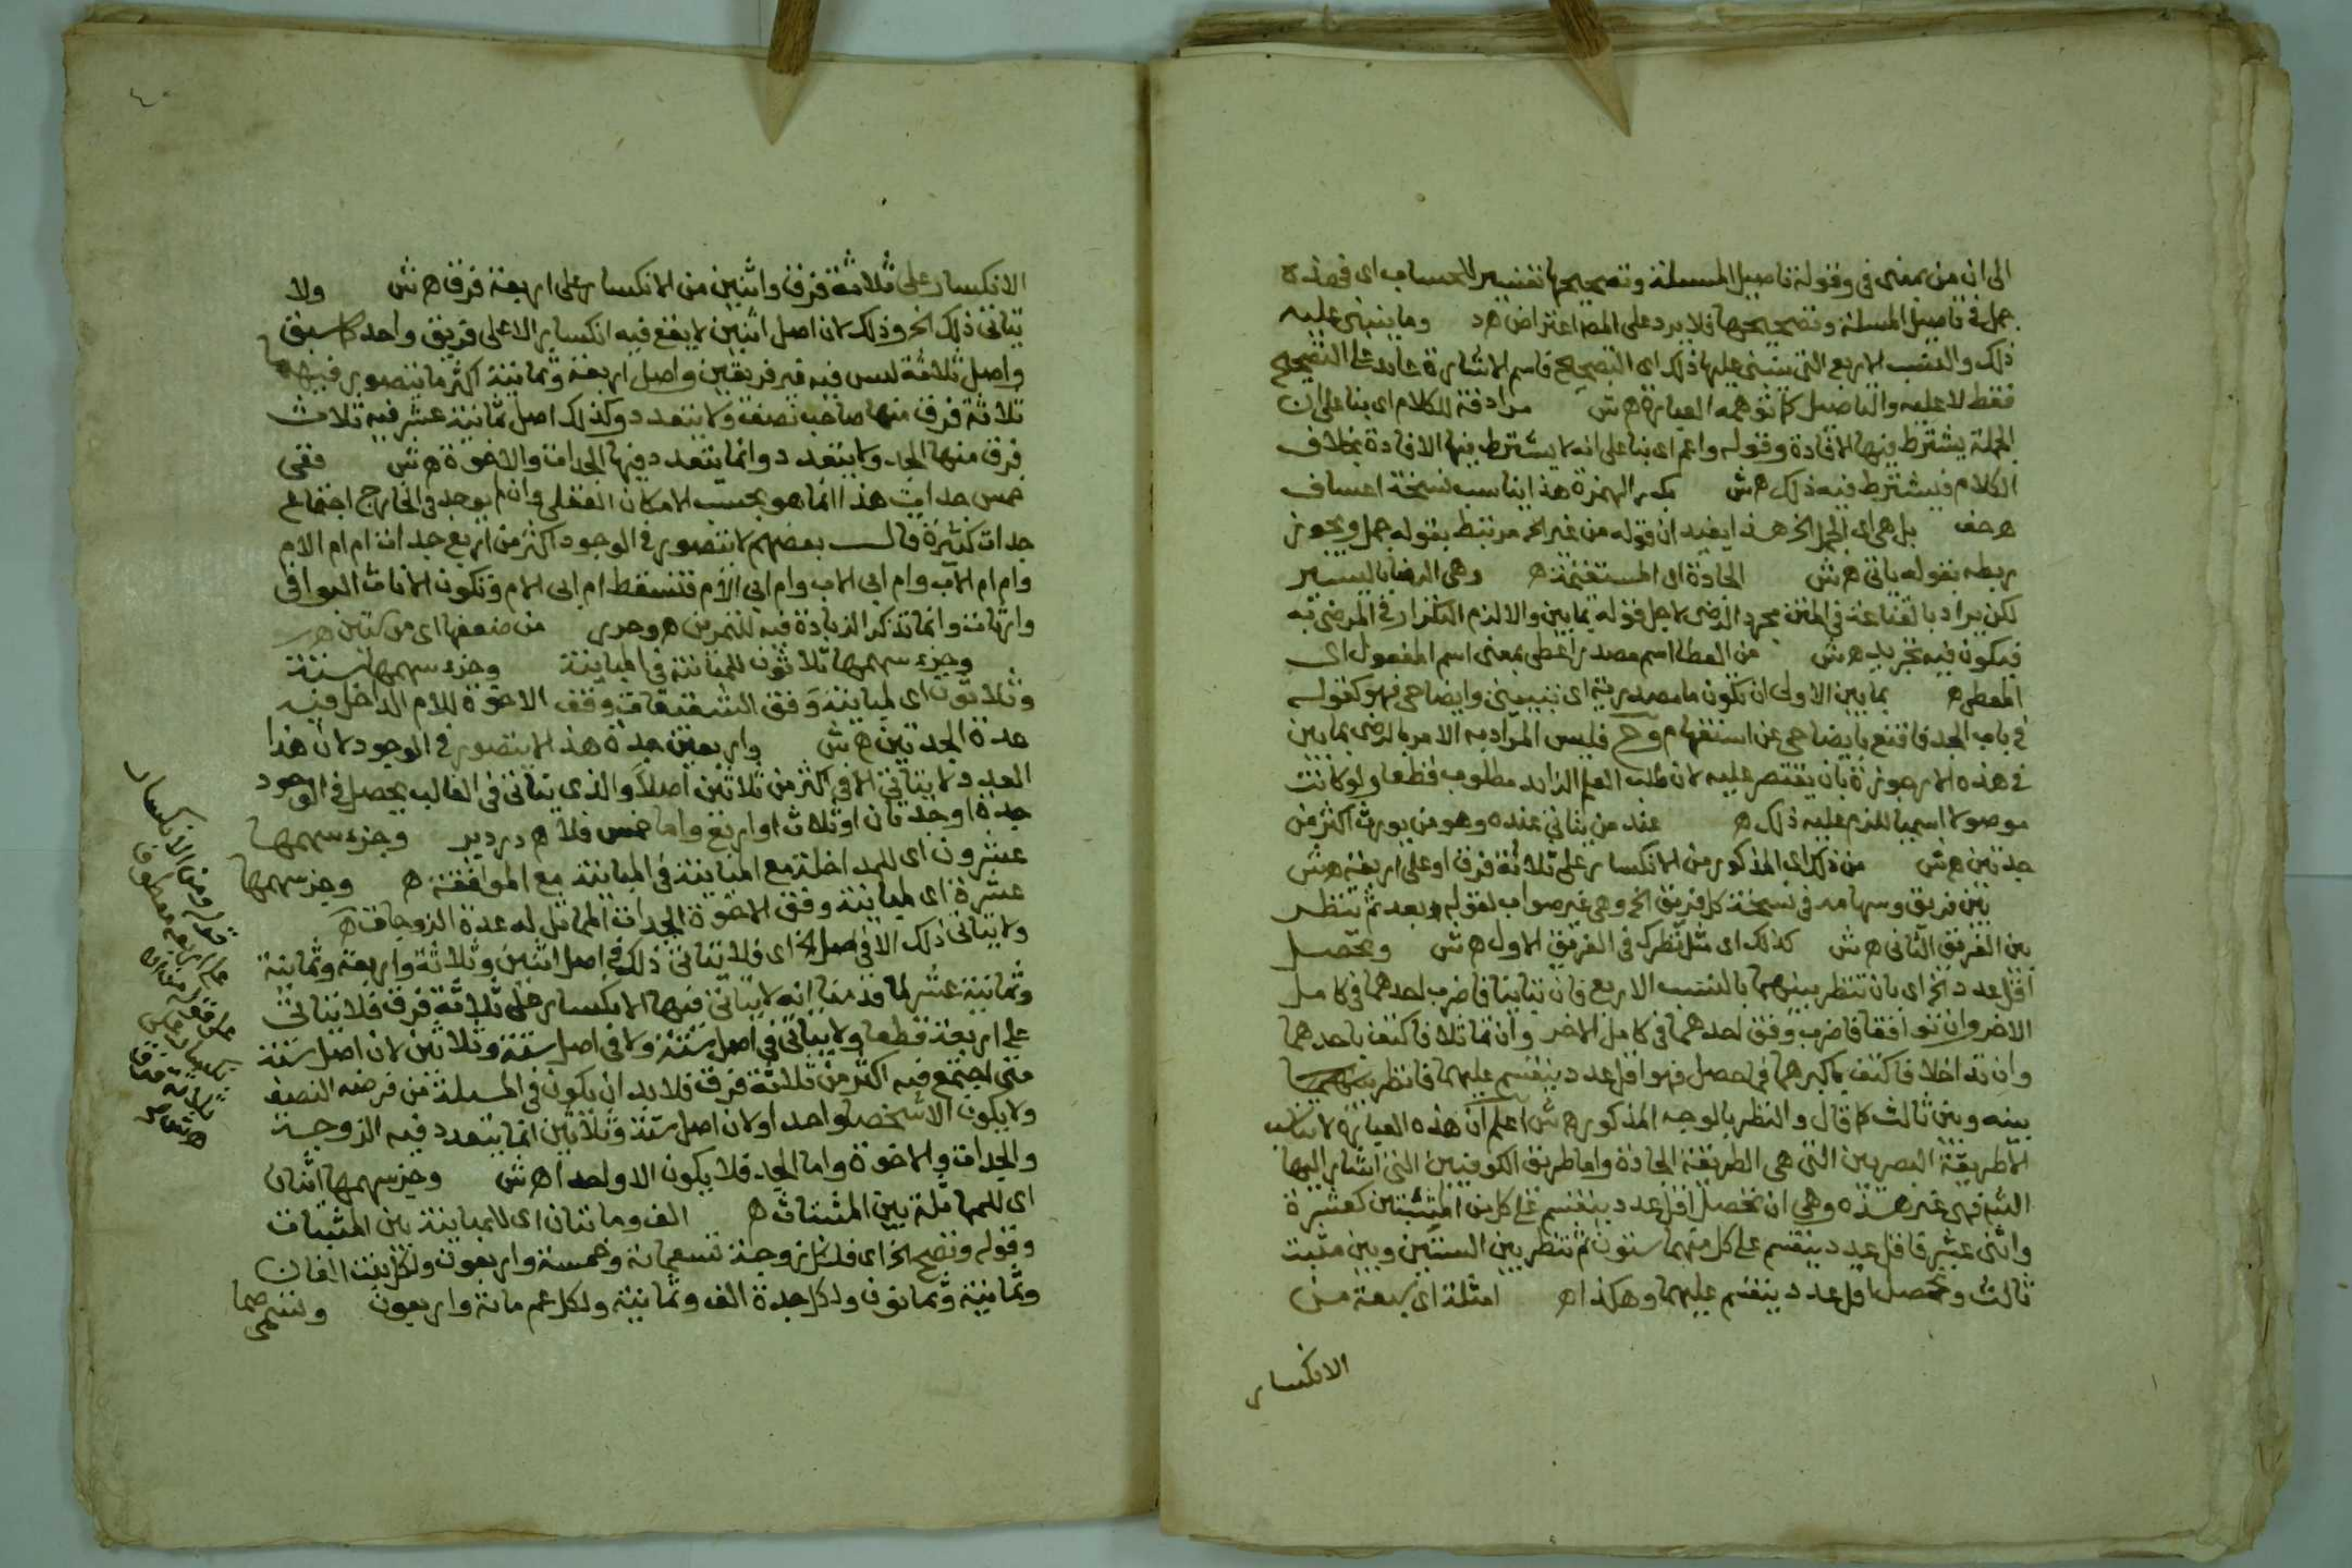 الى ان من بمعنى في وقوله تاصيل المسئلة وتصحيحها تفسير للحساب اى فهذه
جمل في تاصيل المسئلة وتصحيحها فلا يرد على المصـ اعتراض هـ د وما ينبنى عليه
ذلك والنسب الاربع التى ينبنى عليها ذلك اى التصحيح فاسم الاشارة عايد على التصحيح
فقط لا عليه والتاصيل كما توهمه العبارة هـ ش مرادفة للكلام اى بنا على ان
الجملة يشترط فيها الافادة وقوله واعم اى بنا على انه لا يشترط فيها الافادة بخلاف
الكلام فيشترط فيه ذلك هـ ش بكسر الهمزة هذا يناسب نسخة اعساف
هـ حف بل هى اى الجمل الخ هذا يفيد ان قوله من غير الخ مرتبط بقوله جمل ويجوز
ربطه بقوله ياتى هـ ش الجادة اى المستقيمة هـ وهى الرضا باليسير
لكن يراد بالقناعة في المتن مجرد الرضى لاجل قوله بما يبن والا لزم التكرار في المرضى به
فيكون فيه تجريد هـ ش من العطا اسم مصدر اعطى بمعنى اسم المفعول اى
المعطى هـ بما يبن الاولى ان تكون ما مصدرية اى بتبيينى وايضاحى فهو كقوله
في باب الجد فاقنع بايضاحى عن استفهام وح فليس المراد به الامر بالرضى بما يبن
في هذه الارجوزة بان يقتصر عليه لان طلب العلم الزايد مطلوب قطعا ولو كانت
موصولا اسميا للزم عليه ذلك هـ عند من يتاتى عنده وهو من يورث اكثر من
جدتين هـ ش من ذلك اى المذكور من الانكسار على ثلاثة فرق او على اربعة هـ ش
بين فريق وسهامه في نسخة كل فريق الخ وهى غير صواب لقوله بعد ثم تنظر
بين الفريق الثانى هـ ش كذلك اى مثل نظرك في الفريق الاول هـ ش ويحصل
اقل عدد الخ اى بان تنظر بينهما بالنسب الاربع فان تباينا فاضرب احدهما في كامل
الاخر وان توافقا فاضرب وفق احدهما في كامل الاخر وان تماثلا فاكتف باحدهما
وان تداخلا فاكتف باكبرهما فما حصل فهو اقل عدد ينقسم عليهما فانظر
بينه وبين ثالث كما قال والنظر بالوجه المذكور هـ ش اعلم ان هذه العبارة لا تناسب
الا طريقة البصريين التى هى الطريقة الجادة واما طريق الكوفيين التى اشار اليها
الشـ فهى غير هذه وهى ان تحصل اقل عدد ينقسم على كل من المثبتين كعشرة
واثنى عشر فاقل عدد ينقسم على كل منهما ستون ثم تنظر بين الستين وبين مثبت
ثالث وتحصل اقل عدد ينقسم عليهما وهكذا هـ امثلة اى اربعة من
الانكسار
الانكسار على ثلاثة فرق واثنين من الانكسار على اربعة فرق هـ ش ولا
يتاتى ذلك الخ وذلك لان اصل اثنين لا يقع فيه انكسار الا على فريق واحد كما سبق
واصل ثلاثة ليس فيه غير فريقين واصل اربعة وثمانية اكثر ما يتصور فيهما
ثلاثة فرق منها صاحب نصف ولا يتعدد وكذلك اصل ثمانية عشر فيه ثلاث
فرق منها الجد ولا يتعدد وانما يتعدد فيها الجدات والاخوة هـ ش ففى
خمس جدات هذا انما هو بحسب الامكان العقلى وان لم يوجد في الخارج اجتماع
جدات كثيرة قال بعضهم لا يتصور في الوجود اكثر من اربع جدات ام ام الام
وام ام الاب وام ابى الاب وام ابى الام فتسقط ام ابى الام وتكون الثلاث البواقى
وارثات وانما تذكر الزيادة فيه للتمرين هـ وجرى من ضعفها اى من كتابين هـ
وجزء سهمها ثلاثون للمباينة في المباينة وجزء سهمها ستة
وثلاثون اى لمباينة وفق الشقيقات وفق الاخوة للام الداخل فيه
عدة الجدتين هـ ش واربعين جدة هذا لا يتصور في الوجود لان هذا
العدد لا يتاتى الا في اكثر من ثلاثين اصلا والذى يتاتى في الغالب يحصل في الوجود
جدة او جدتان او ثلاث او اربع واما خمس فلا هـ دردير وجزء سهمها
عشرون اى للمداخلة مع المباينة في المباينة مع الموافقة هـ وجزء سهمها
عشرة اى لمباينة وفق الاخوة الجدات المماثل له عدة الزوجات هـ
ولا يتاتى ذلك الا في اصل الخ اى فلا يتاتى ذلك في اصل اثنين وثلاثة واربعة وثمانية
وثمانية عشر لما قدمنا انه لا يتاتى فيها الانكسار على ثلاثة فرق فلا يتاتى
على اربعة قطعا ولا يتاتى في اصل ستة ولا في اصل ستة وثلاثين لان اصل ستة
متى اجتمع فيه اكثر من ثلاثة فرق فلا بد ان يكون في المسئلة من فرضه النصف
ولا يكون الا شخصا واحدا ولان اصل ستة وثلاثين انما يتعدد فيه الزوجة
والجدات والاخوة واما الجد فلا يكون الا واحدا هـ ش وجزء سهمها اثنان
اى للمماثلة بين المثبتات هـ الف ومائتان اى للمباينة بين المثبتات
وقوله وتصح الخ اى فلكل زوجة تسعماية وخمسة واربعون ولكل بنت الفان
وثمانية وثمانون ولكل جدة الف وثمانية ولكل عم ماية واربعون وتسمى صما
قوله ومن الانكسار
على اربعة معطوف